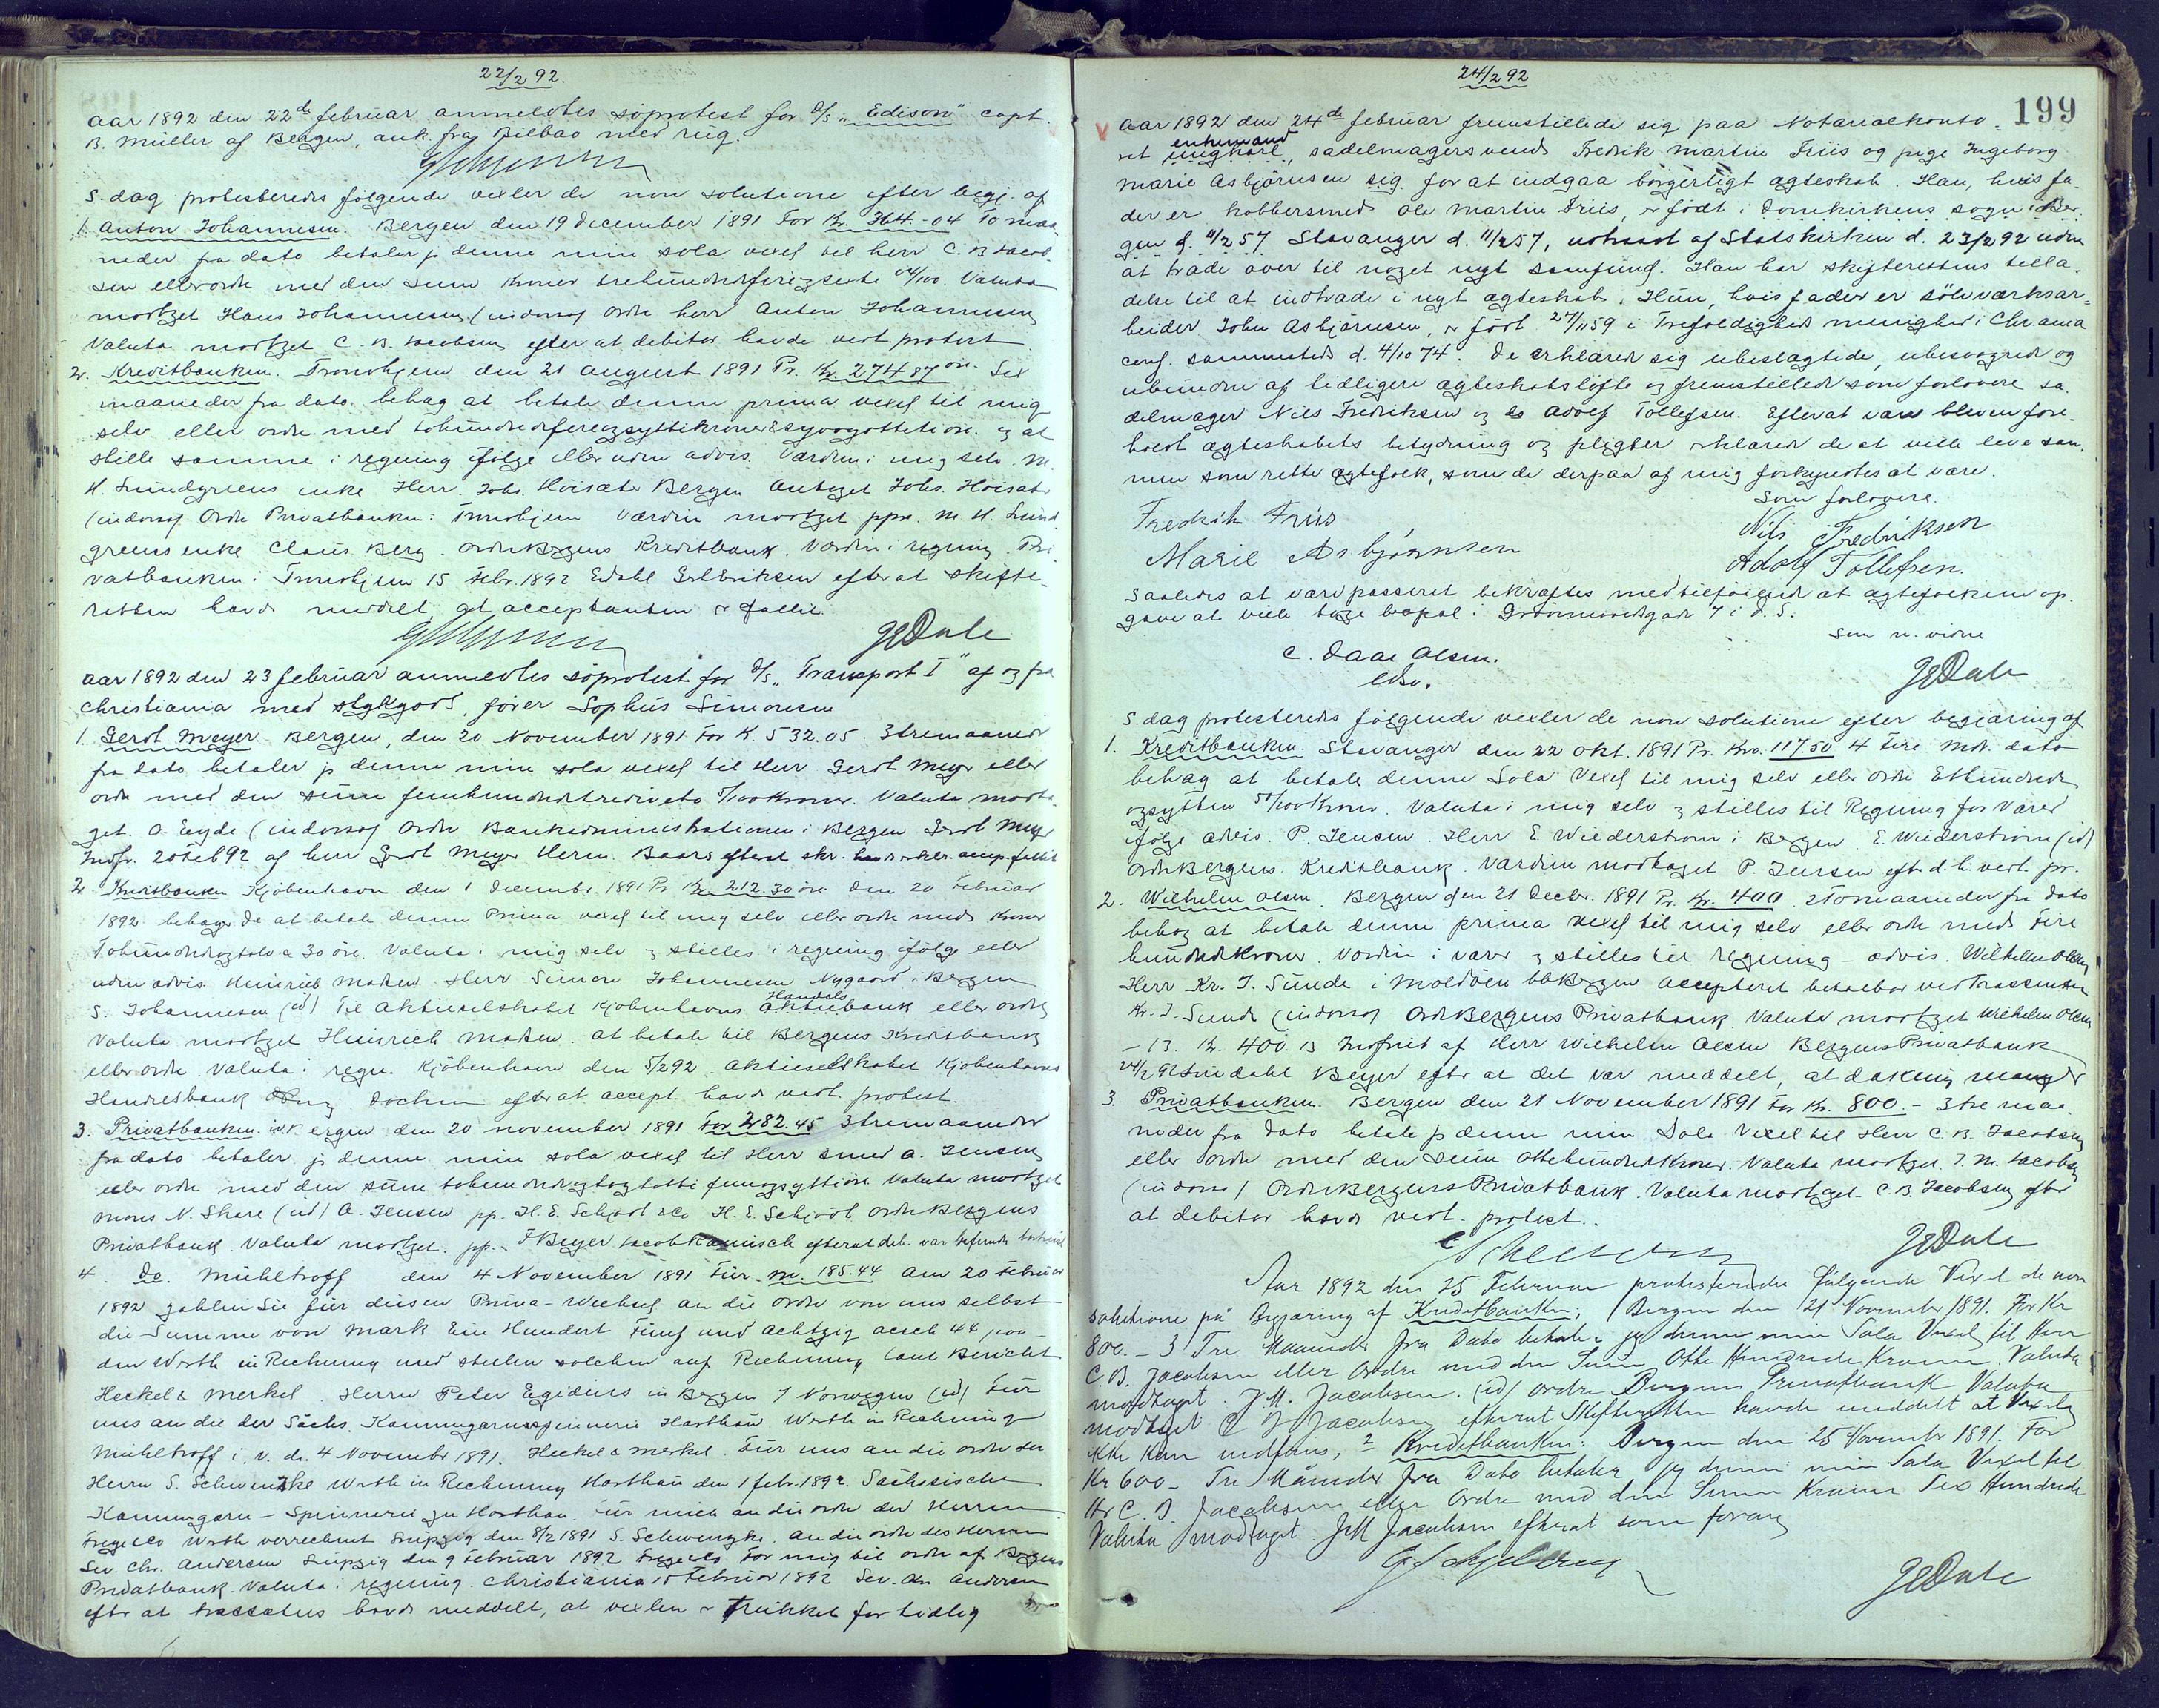 22/2 92.
Aar 1892 den 22de februar anmeldtes søprotest for D/S „Edison" capt.
B. Müller af Bergen, ank. fra Bilbao med rug.
S. dag protesteredes følgende vexler de non solutione efter begj. af
1. Anton Johannesen. Bergen den 19 december 1891 For Kr. 364-04 To maa-
neder fra dato betaler jeg denne min sola vexel til herr C. B. Jacob-
sen eller ordre med den sum Kroner trehundredefireogseksti 04/100. Valuta
modtaget Hans Johannesen (indorso) Ordre herr Anton Johannesen
Valuta modtaget C. B. Jacobsen efter at debitor havde vert protest
2. Kreditbanken. Trondhjem den 21 august 1891 Pr. Kr. 274 87 øre. Sex
maaneder fra dato behag at betale denne prima vexel til mig
selv eller ordre med tohundredefireogsyttikroner & syvogottetiøre og at
stille samme i regning ifølge eller uden advis. Værdien i mig selv. M.
H. Lundgreens enke Herr Johs. Høisæter Bergen Antaget Johs. Høisæter
(indorso) Ordre Privatbanken i Trondhjem Værdien modtaget ppa. M. H. Lund-
greens enke Claus Berg. Ordre Bergens Kreditbank. Værdien i regning. Pri-
vatbanken i Trondhjem 15 Febr. 1892 Edahl Erl Eriksen efter at skifte-
retten havde meddelt at acceptanten er fallit.
GEDahl
Aar 1892 den 23 februar anmeldtes søprotest for D/S „Transport I" af og fra
Christiania med stykgods, fører Sophus Simonsen
1. Gerdt Meyer. Bergen, den 20 November 1891 For K. 532.05. 3 tremaaneder
fra dato betaler jeg denne min sola vexel til Herr Gerdt Meyer eller
ordre med den sum femhundredetrediveto 5/100 Kroner. Valuta modta-
get. O. Eyde (indorso) Ordre Bankadministrationen i Bergen Gerdt Meyer
Indfr. 20 Feb 92 af herr Gerdt Meyer Herm. Baars efterat skr. havde erkl. accep. fallit
2. Kreditbanken Kjøbenhavn den 1 december 1891 Pr. Kr. 212.30 øre Den 20 Februar
1892 behager De at betale denne Prima vexel til mig selv eller ordre med Kroner
Tohundredeogtolv & 30 øre. Valuta i mig selv og stilles i regning ifølge eller
uden advis Heinrich Madsen Herr Simon Johannesen Nygaard i Bergen
S. Johannesen (id) Til Aktieselskabet Kjøbenhavns Handels bank eller ordre
Valuta modtaget Heinrich Madsen. At betale til Bergens Kreditbank
eller ordre. Valuta i regn. Kjøbenhavn den 5/2 92. Aktieselskabet Kjøbenhavns
Handelsbank Jochim efter at accept. havde vedt. protest.
3. Privatbanken. Bergen den 20 november 1891 For 282.45 3 tremaaneder
fra dato betaler jeg denne min sola vexel til Herr Smed A. Jensen
eller ordre med den sum tohundredeogtoogotti femogfyrtiøre Valuta modtaget
Mons N. Skare (id) A. Jensen pp. H. E. Schjødt & Co H. E. Schjødt Ordre Bergens
Privatbank. Valuta modtaget. pp. F Beyer Jacob Kamisch efterat deb. var befunden bortreist
4. Do. Mühltroff den 4 November 1891 Für M. 185.44 Am 20 Februar
1892 zahlen Sie für diesen Prima-Wechsel an die Ordre von uns selbst
die Summe von Mark Ein Hundert Fünf und Achtzig auch 44 poo -
den Werth in Rechnung und stellen solchen auf Rechnung laut Bericht
Heckel & Merkel. Herrn Peter Egidius in Bergen / Norwegen (id) Für
uns an die der Sächs. Kammgarnspinnerei Harthau. Werth in Rechnung
Mühltroff i. V. d. 4 November 1891. Heckel & Merkel. Für uns an die Ordre des
Herrn S. Schwenzke Werth in Rechnung Harthau den 1 febr. 1892. Sächsische
Kammgarn-Spinnerei zu Harthau. Für mich an die Ordre der Herren
Frege & Co Werth verrechnet Leipzig den 8/2 1891 S. Schwenzke. An die Ordre des Herrn
Sev. Chr. Andersen Leipzig den 9 Februar 1892 Frege & Co. For mig til ordre af Bergens
Privatbank. Valuta i regning. Christiania 15 Februar 1892 Sev. Chr. Andersen
efter at trassatus havde meddelt, at vexlen er trukket for tidlig
24/2 92
199
Aar 1892 den 24de februar fremstillede sig paa Notarialkonto-
ret enkemand ungkarl, sadelmagersvend Fredrik Martin Friis og pige Ingeborg
Marie Asbjørnsen sig for at indgaa borgerligt ægteskab. Han, hvis fa-
der er kobbersmed Ole Martin Friis, er født i Domkirkens sogn i Ber-
gen d. 11/2 57 Stavanger d. 11/2 57, udtraadt af Statskirken d. 23/2 92 uden
at træde over til noget nyt samfund. Han har skifterettens tilla-
delse til at indtræde i nyt ægteskab. Hun, hvis fader er sølvværksar-
beider John Asbjørnsen, er født 27/11 59 i Trefoldighed menighed i Chr.ania
conf. sammesteds d. 4/10 74. De erklærede sig ubeslægtede, ubesvogrede og
ubundne af tidligere ægteskabsløfte og fremstillede som forlovere sa-
delmager Nils Fredriksen og do Adolf Tollefsen. Efterat være bleven fore-
holdt ægteskabets betydning og pligter erklærede de at ville leve sam-
men som rette ægtefolk, som de derpaa af mig forkyndtes at være.
Som forlovere.
Fredrik Friis
Nils Fredriksen
Marie Asbjørnsen
Adolf Tollefsen.
Saaledes at være passeret bekræftes med tilføiende at ægtefolkene op-
gave at ville tage bopæl i Strømmen 7 i d. S.
Som n. vidne
C. Daae Olsen.
GEDahl
S. dag protesteredes følgende vexler de non solutione efter begjæring af
1. Kreditbanken. Stavanger den 22 Okt. 1891 Pr. Kro. 117.50 4 Fire Mdr. dato
behag at betale denne Sola Vexel til mig selv eller ordre Ethundrede
ogsytten 50/100 Kroner. Valuta i mig selv og stilles til Regning for Varer
ifølge advis. P. Jensen. Herr E Wiederstrøm i Bergen E. Wiederstrøm (id)
Ordre Bergens Kreditbank. Værdien modtaget P. Jensen efter d. h. vedt. pr.
2. Wilhelm Olsen. Bergen den 21 Decbr. 1891 Pr. Kr. 400. 2 Tomaaneder fra dato
behag at betale denne prima vexel til mig selv eller ordre med Fire
hundred Kroner. Værdien i varer og stilles til regning - advis. Wilhelm Olsen
Herr Kr. J. Sunde i Moldøen bb Bergen Accepteret betalbar ved Trassenten
Kr. J. Sunde (indorso) Ordre Bergens Privatbank. Valuta modtaget Wilhelm Olsen
- 13. Kr. 400.13 Indfriet af Herr Wilhelm Olsen Bergens Privatbank
24/2 92 Lindahl Beyer efter at det var meddelt, at dækning mangler
3. Privatbanken. Bergen den 21 November 1891 For Kr. 800.- 3 tre maa-
neder fra dato betaler jeg denne min Sola Vexel til Herr C. B. Jacobsen
eller ordre med den Sum Ottehundred Kroner. Valuta modtaget. J. M. Jacobsen
(indorso) Ordre Bergens Privatbank. Valuta modtaget. C. B. Jacobsen efter
at debitor havde vedt. protest..
GEDahl
Aar 1892 den 25 Februar protesteredes følgende Vexel de non
solutione på Begjæring af Kreditbanken; 1 Bergen den 21 November 1891. For Kr
800.- 3 Tre Maaneder fra Dato betaler jeg denne min Sola Vexel til Herr
C. B. Jacobsen eller Ordre med den Sum Otte Hundrede Kroner. Valuta
modtaget. J. M. Jacobsen. (id) ordre Bergens Privatbank Valuta
modtaget C B Jacobsen efterat Skifteretten havde meddelt at Vexelen
ikke kan indfries, 2 Kreditbanken: Bergen den 25 November 1891. For
Kr 600- Tre Måneder fra Dato betaler jeg denne min Sola Vexel til
Hr C. B. Jacobsen eller Ordre med den Summ Kroner Sex Hundrede
Valuta modtaget. J M Jacobsen efterat som foran
GEDahl